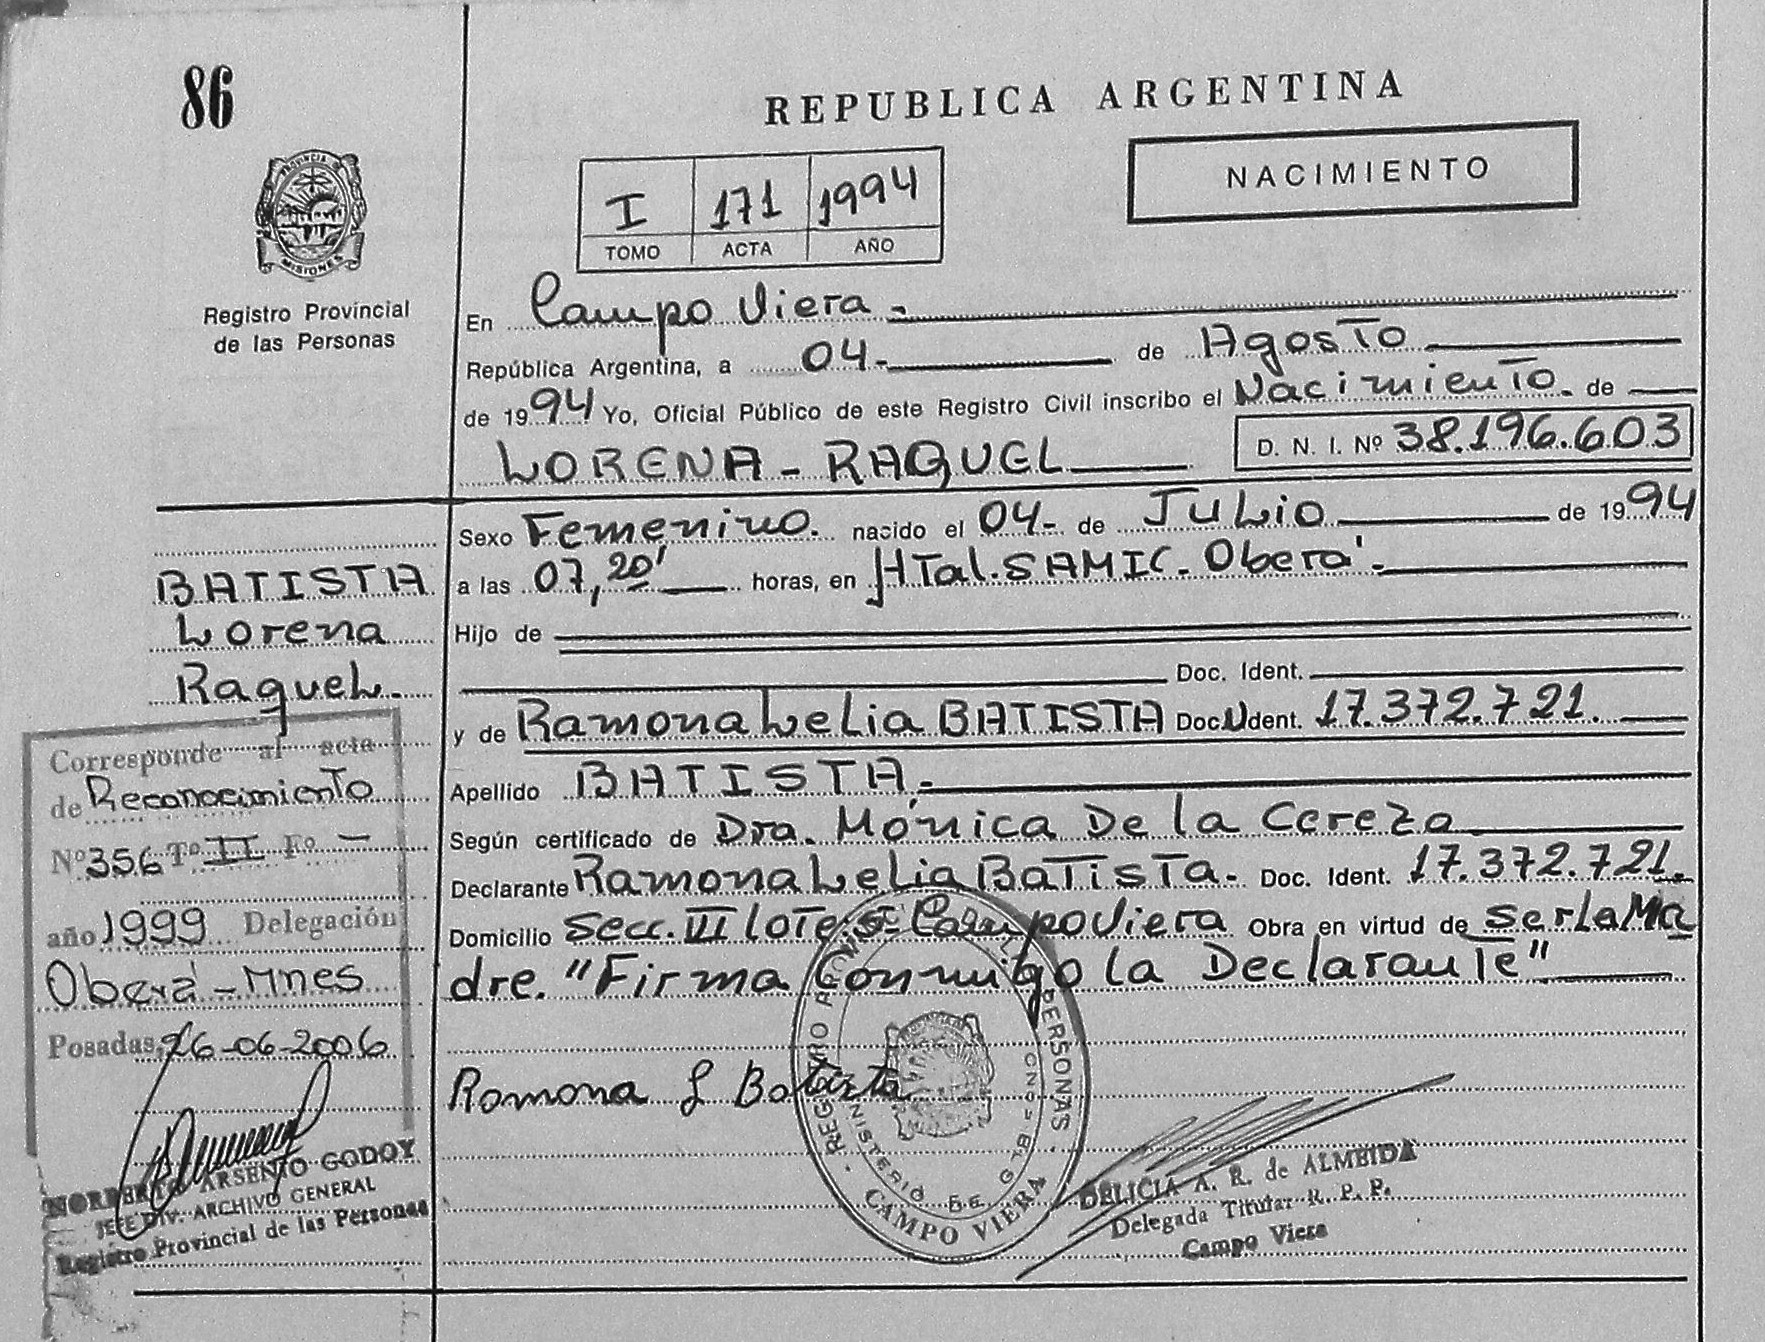 86
REPUBLICA ARGENTINA
NACIMIENTO
PROVINCIA DE
MISIONES
Registro Provincial
de las Personas
I 171 1994
TOMO ACTA AÑO
En Campo Viera.-
República Argentina, a 04.- de Agosto
de 1994 Yo, Oficial Público de este Registro Civil inscribo el Nacimiento. de
LORENA - RAQUEL
D. N. I. Nº 38.196.603
Sexo Femenino. nacido el 04- de Julio de 1994
a las 07,20' horas, en HTal. SAMIC. Obera'.-
Hijo de
Doc. Ident.
y de Ramona Lelia BATISTA Doc. Ident. 17.372.721.
Apellido BATISTA.-
Según certificado de Dra. Mónica De la Cereza
Declarante Ramona Lelia Batista.- Doc. Ident. 17.372.721.
Domicilio Secc. VI lote: 5- Campo Viera Obra en virtud de ser la Ma
dre. "Firma Conmigo la Declarante"
Ramona L Batista
BATISTA
Lorena
Raquel.-
Corresponde al acta
de Reconocimiento
Nº 356 Tº II Fº -
año 1999 Delegación
Oberá - Mnes
Posadas, 26-06-2006
ARSENIO GODOY
JEFE DIV. ARCHIVO GENERAL
Registro Provincial de las Personas
REGISTRO PERSONAS
CAMPO VIERA
DELICIA A. R. de ALMEIDA
Delegada Titular R. P. P.
Campo Viera